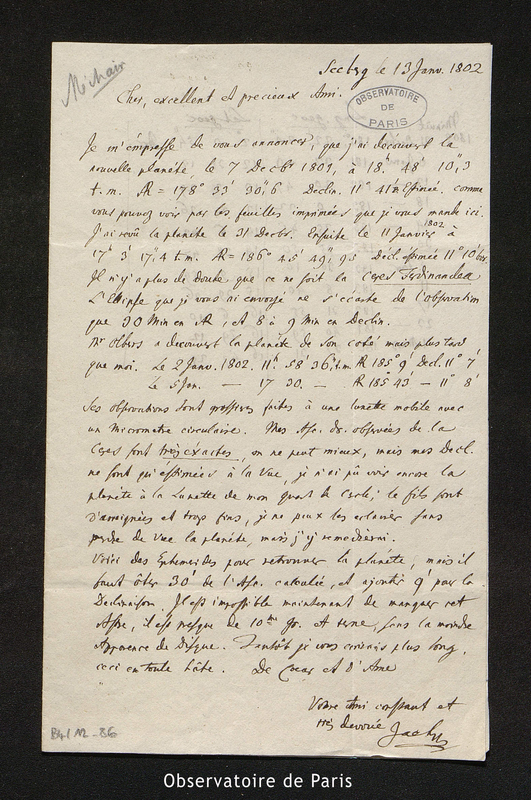 Seeberg le 13 Janv. 1802
Méchain
Cher, excellent et precieux Ami.
OBSERVATOIRE
DE
PARIS
Je m'empresse de vous annoncer, que j'ai decouvert la
nouvelle planéte, le 7 Decbr 1801, à 18h 48' 10",3
t. m. AR = 178° 33' 30",6 Declin. 11° 41' Estimée. comme
vous pouvez voir par les feuilles imprimées que je vous mande ici.
J'ai revû la planéte le 31 Decbr. Ensuite le 11 Janvier 1802 à
17h 3' 17",4 t. m. AR = 186° 45' 49", 95 Decl. estimée 11° 10'
Il n'y a plus de Doute que ce ne soit la Ceres Ferdinandea
L'Ellipse que je vous ai envoyé ne s'écarte de l'observation
que 30 Min en AR, et 8 à 9 Min en Declin.
Mr Olbers a decouvert la planéte de son coté mais plus tard
que moi. Le 2 Janv. 1802. 11h. 58' 36" t. m AR 185° 9' Decl. 11° 7'
Le 5 Jan. — 17 30. — AR 185 43 — 11° 8'
Ses observations sont grossieres faites à une lunette mobile avec
un Micrometre circulaire. Mes Asc. dr. observées de la
Ceres sont très exactes, on ne peut mieux, mais mes Decl.
ne sont qu'estimées à la vue, je n'ai pû voir encore la
planéte à la Lunette de mon quart de Cercle; le fils sont
d'araignées et trop fins, je ne peux les eclairer sans
perdre de vue la planéte, mais j'y remedierai.
Voici des Ephemerides pour retrouver la planéte, mais il
faut ôter 30' de l'Asc. calculée, et ajouter 9' par la
Declinaison. Il est impossible maintenant de manquer cet
Astre, il est presque de 10me gr. et terne, sans la moindre
Apparence de Disque. Tantôt je vous écrirais plus long,
ceci en toute hâte. De Cœur et d'Ame
Votre Ami constant et
très devoué Zach
B4/12-86
Observatoire de Paris